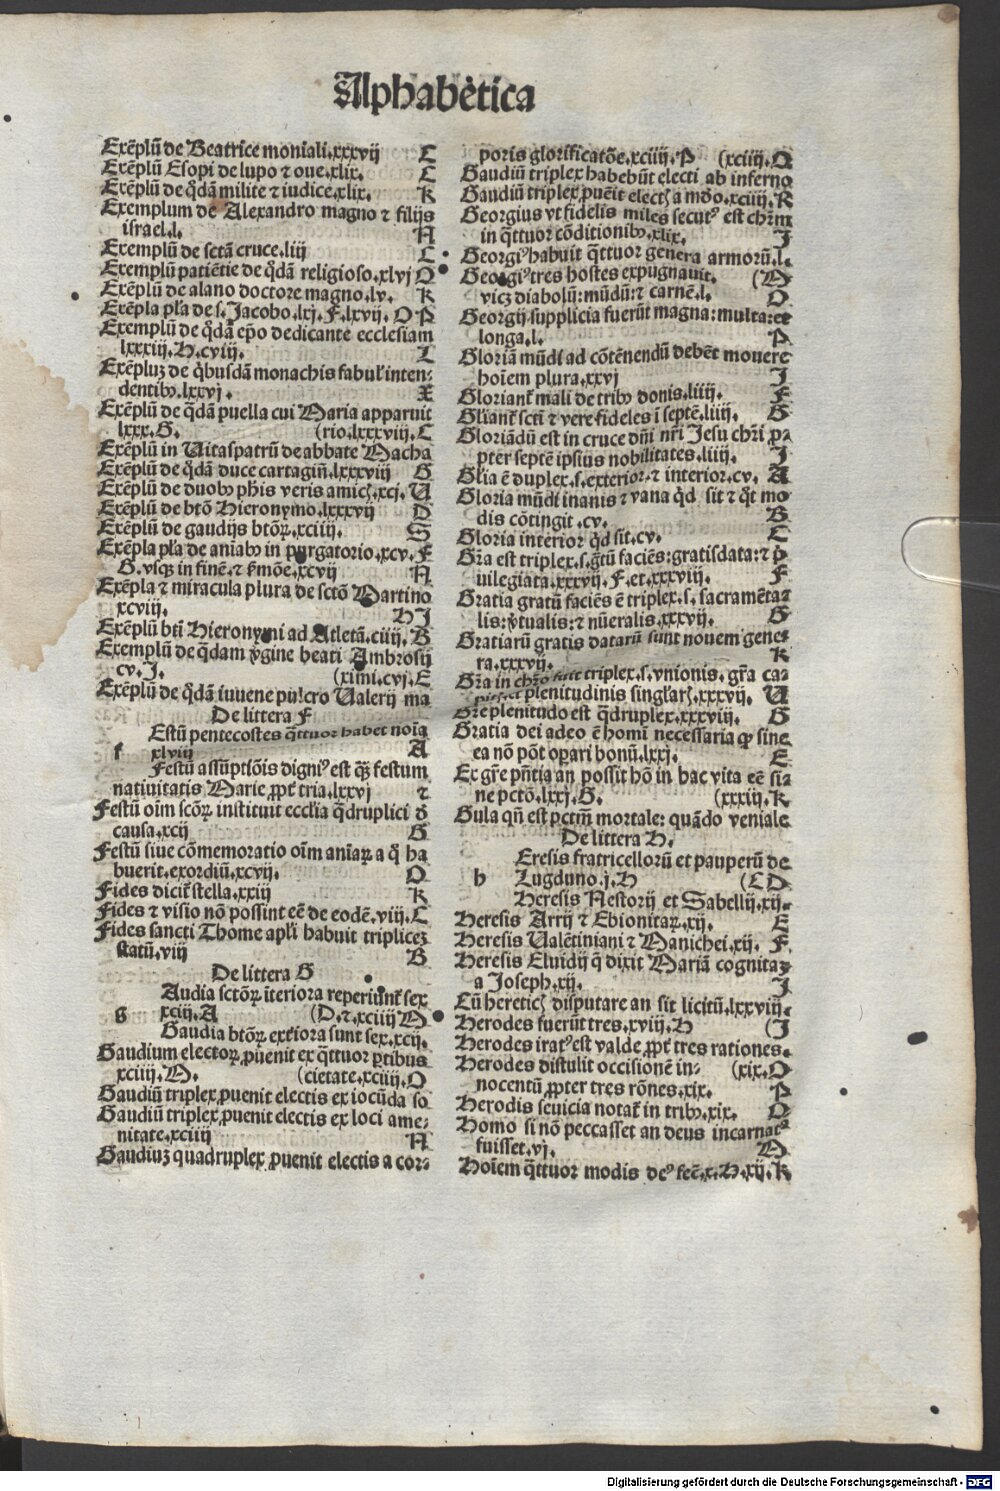 Alphabetica
Exēplū de Beatrice moniali.xxxvij C
Exēplū Esopi de lupo ⁊ oue.xlix. C
Exēplū de qdā milite ⁊ iudice.xlix. K
Exemplum de Alexandro magno ⁊ filijs
israel.l. N
Exemplū de sctā cruce.liij C
Exemplū patiētie de qdā religioso.xlvj O
Exēplū de alano doctore magno.lv. K
Exēpla pl̄a de s. Jacobo.lxj. F.lxvij. O P
Exemplū de qdā ep̄o dedicante ecclesiam
lxxxiij.H.cviij. T
Exēpluꝫ de qbusdā monachis fabul' inten-
dentibꝰ.lxxvj. X
Exēplū de qdā puella cui Maria apparuit
lxxx.G. (rio.lxxxviij.C
Exēplū in Uitaspatrū de abbate Macha
Exēplū de qdā duce cartagiñ.lxxxviij G
Exēplū de duobꝰ ph̄is veris amicꝭ.xcj. U
Exēplū de btō Hieronymo.lxxxvij D
Exēplū de gaudijs btōꝝ.xciiij. S
Exēpla pl̄a de aniabꝰ in purgatorio.xcv. F
G. vsqꝫ in finē.⁊ ẞmōe.xcvij N
Exēpla ⁊ miracula plura de sctō Martino
xcviij. H J
Exēplū bti Hieronymi ad Atletā.ciiij. B
Exemplū de qdam v̄gine beati Ambrosij
cv. J. (ximi.cvj.E
Exēplū de qdā iuuene pulcro Ualerij ma
De littera F
Estū pentecostes qttuor habet noīa
f xlviij A
Festū assūptiōis digniꝰ est qꝫ festum
natiuitatis Marie ꝓpt̄ tria.lxxvj ⁊
Festū oīm scōꝝ instituit eccl'ia qdruplici d
causa.xcij G
Festū siue cōmemoratio oīm aniaꝝ a q̄ ha
buerit.exordiū.xcvij. O
Fides dicit̄ stella.xxij K
Fides ⁊ visio nō possint eē de eodē.viij. C
Fides sancti Thome apl'i habuit tripliceꝫ
statū.viij B
De littera G
Audia sctōꝝ īteriora reperiūnt̄ sex
g xciij.A (D.⁊.xciiij M
Gaudia btōꝝ ext̄iora sunt sex.xcij.
Gaudium electoꝝ ꝓuenit ex qttuor ꝑtibus
xciiij.M. (cietate.xciiij.O
Gaudiū triplex ꝓuenit electis ex iocūda so
Gaudiū triplex ꝓuenit electis ex loci ame-
nitate.xciiij N
Gaudiuꝫ quadruplex ꝓuenit electis a cor-
poris glorificatōe.xciiij. P (xciiij.Q
Gaudiū triplex habebūt electi ab inferno
Gaudiū triplex ꝓuēit electꝭ a mdo.xciiij. R
Georgius vt fidelis miles secutꝰ est chr̄m
in qttuor cōditionibꝰ.xlix. J
Georgiꝰ habuit qttuor genera armorū.l.
Georgiꝰ tres hostes expugnauit. (M
vicꝫ diabolū: mūdū: ⁊ carnē.l. O
Georgij supplicia fuerūt magna: multa: et
longa.l. P
Gloriā mūdi ad cōtēnendū debēt mouere
hoīem plura.xxvj J
Gloriant̄ mali de tribꝰ donis.liiij. F
Gl'iant̄ scti ⁊ vere fideles ī septē.liiij. G
Gloriādū est in cruce dn̄i nr̄i Jesu chr̄i ꝓ-
pter septē ipsius nobilitates.liiij. J
Gl'ia ē duplex.s.exterior.⁊ interior.cv. A
Gloria mūdi inanis ⁊ vana qd sit ⁊ qt mo
dis cōtingit.cv. B
Gloria interior qd sit.cv. C
Gr̄a est triplex.s.gtū faciēs: gratisdata: ⁊ p
uilegiata.xxxvij. F. et.xxxviij. F
Gratia gratū faciēs ē triplex.s. sacramēta-
lis: v̄tualis: ⁊ nūeralis.xxxvij. G
Gratiarū gratis datarū sunt nouem gene-
ra.xxxvij. K
Gr̄a in chro fuit triplex.s.vnionis. gr̄a ca-
plenitudinis singlarꝭ.xxxvij. U
Gr̄e plenitudo est qdruplex.xxxviij. G
Gratia dei adeo ē homi necessaria qꝫ sine
ea nō pōt oꝑari bonū.lxxj. E
Ex gr̄e pn̄tia an possit hō in hac vita eē si-
ne pctō.lxxj. G. (xxxiij.K
Gula qn̄ est pctm̄ mortale: quādo veniale
De littera H.
Eresis fratricellorū et pauperū de
h Lugduno.j.H (C D
Heresis Nestorij et Sabellij.xij.
Heresis Arrij ⁊ Ebionitaꝝ.xij. E
Heresis Ualētiniani ⁊ Manichei.xij. F
Heresis Eluidij q̄ dixit Mariā cognitaꝫ
a Joseph.xij. J
Cū hereticꝭ disputare an sit licitū.lxxviij.
Herodes fuerūt tres.xviij.H (J
Herodes iratꝰ est valde ꝓpt̄ tres rationes.
Herodes distulit occisionē in- (xix.O
nocentū ꝓpter tres rōnes.xix. P
Herodis seuicia notat̄ in tribꝰ.xix. Q
Homo si nō peccasset an deus incarnatꝰ
fuisset.vj. M
Hoīem qttuor modis deꝰ fec̄.x.H.xij.K
Digitalisierung gefördert durch die Deutsche Forschungsgemeinschaft - DFG